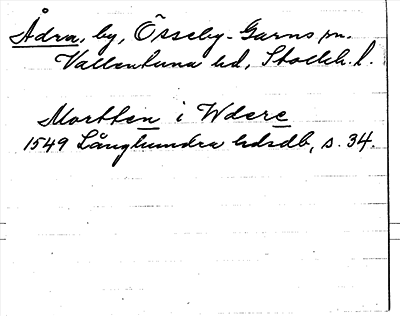 Ådra, by, Össeby-Garns sn.
Vallentuna hd, Stockh. l.
Mortten i Wdere
1549 Långhundra hdsdb, s. 34.